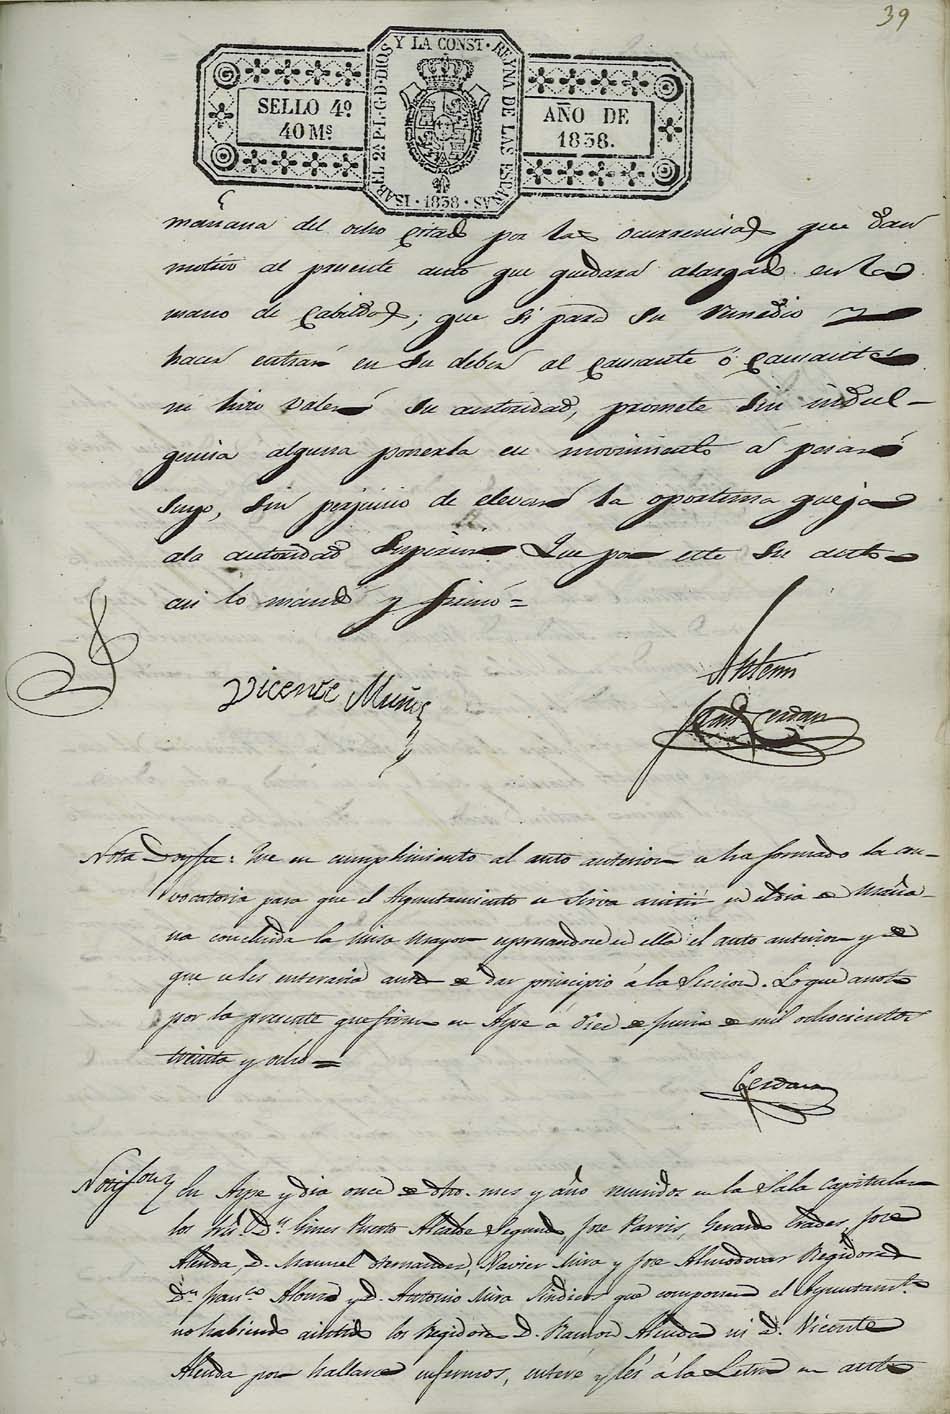 39
SELLO 4º
40 Mˢ
ISABEL 2ª P.L.G.D.DIOS Y LA CONST. REYNA DE LAS ESPAÑAS
1838
AÑO DE
1838.
mañana del ocho estado por las ocurrencias que dan
motivo al presente auto que quedará alargado en la
mano de Cabildos; que si para su remedio y
hacer entrar en su deber al causante ó causantes
ni hizo valer su autoridad, promete sin indul-
gencia alguna ponerla en movimiento á pesar
suyo, sin perjuicio de elevar la oportuna queja
ala autoridad Superior Que por este su auto
asi lo mandó y firmó=
Vicente Muñoz
Antemi
Juan Cerdan
Nota Doy fee: Que en cumplimiento al auto anterior se ha formado la con-
vocatoria para que el Ayuntamiento se sirva asistir en el dia de Maña-
na concluida la misa mayor expresandose en ella el auto anterior y de
que se les enteraria antes de dar principio á la Seccion. Lo que anoto
por la presente que firmo en Aspe á diez de Junio de mil ochocientos
treinta y ocho=
Cerdan
Notifon
En Aspe y dia once de dho. mes y año reunidos en la Sala Capitular
los Sres. Dn. Gines Puerto Alcalde Segundo, Jose Pavia, Gerardo Erades, Jose
Alenda, D. Manuel Hernandez, Xavier Mira y Jose Almodovar Regidores
Dn. Franco. Alonso y D. Antonio Mira Sindicos que componen el Ayuntamto.
no habiendo asistido los Regidores D. Ramon Alenda ni D. Vicente
Alenda por hallarse enfermos, enteré y leí á la Letra en auto